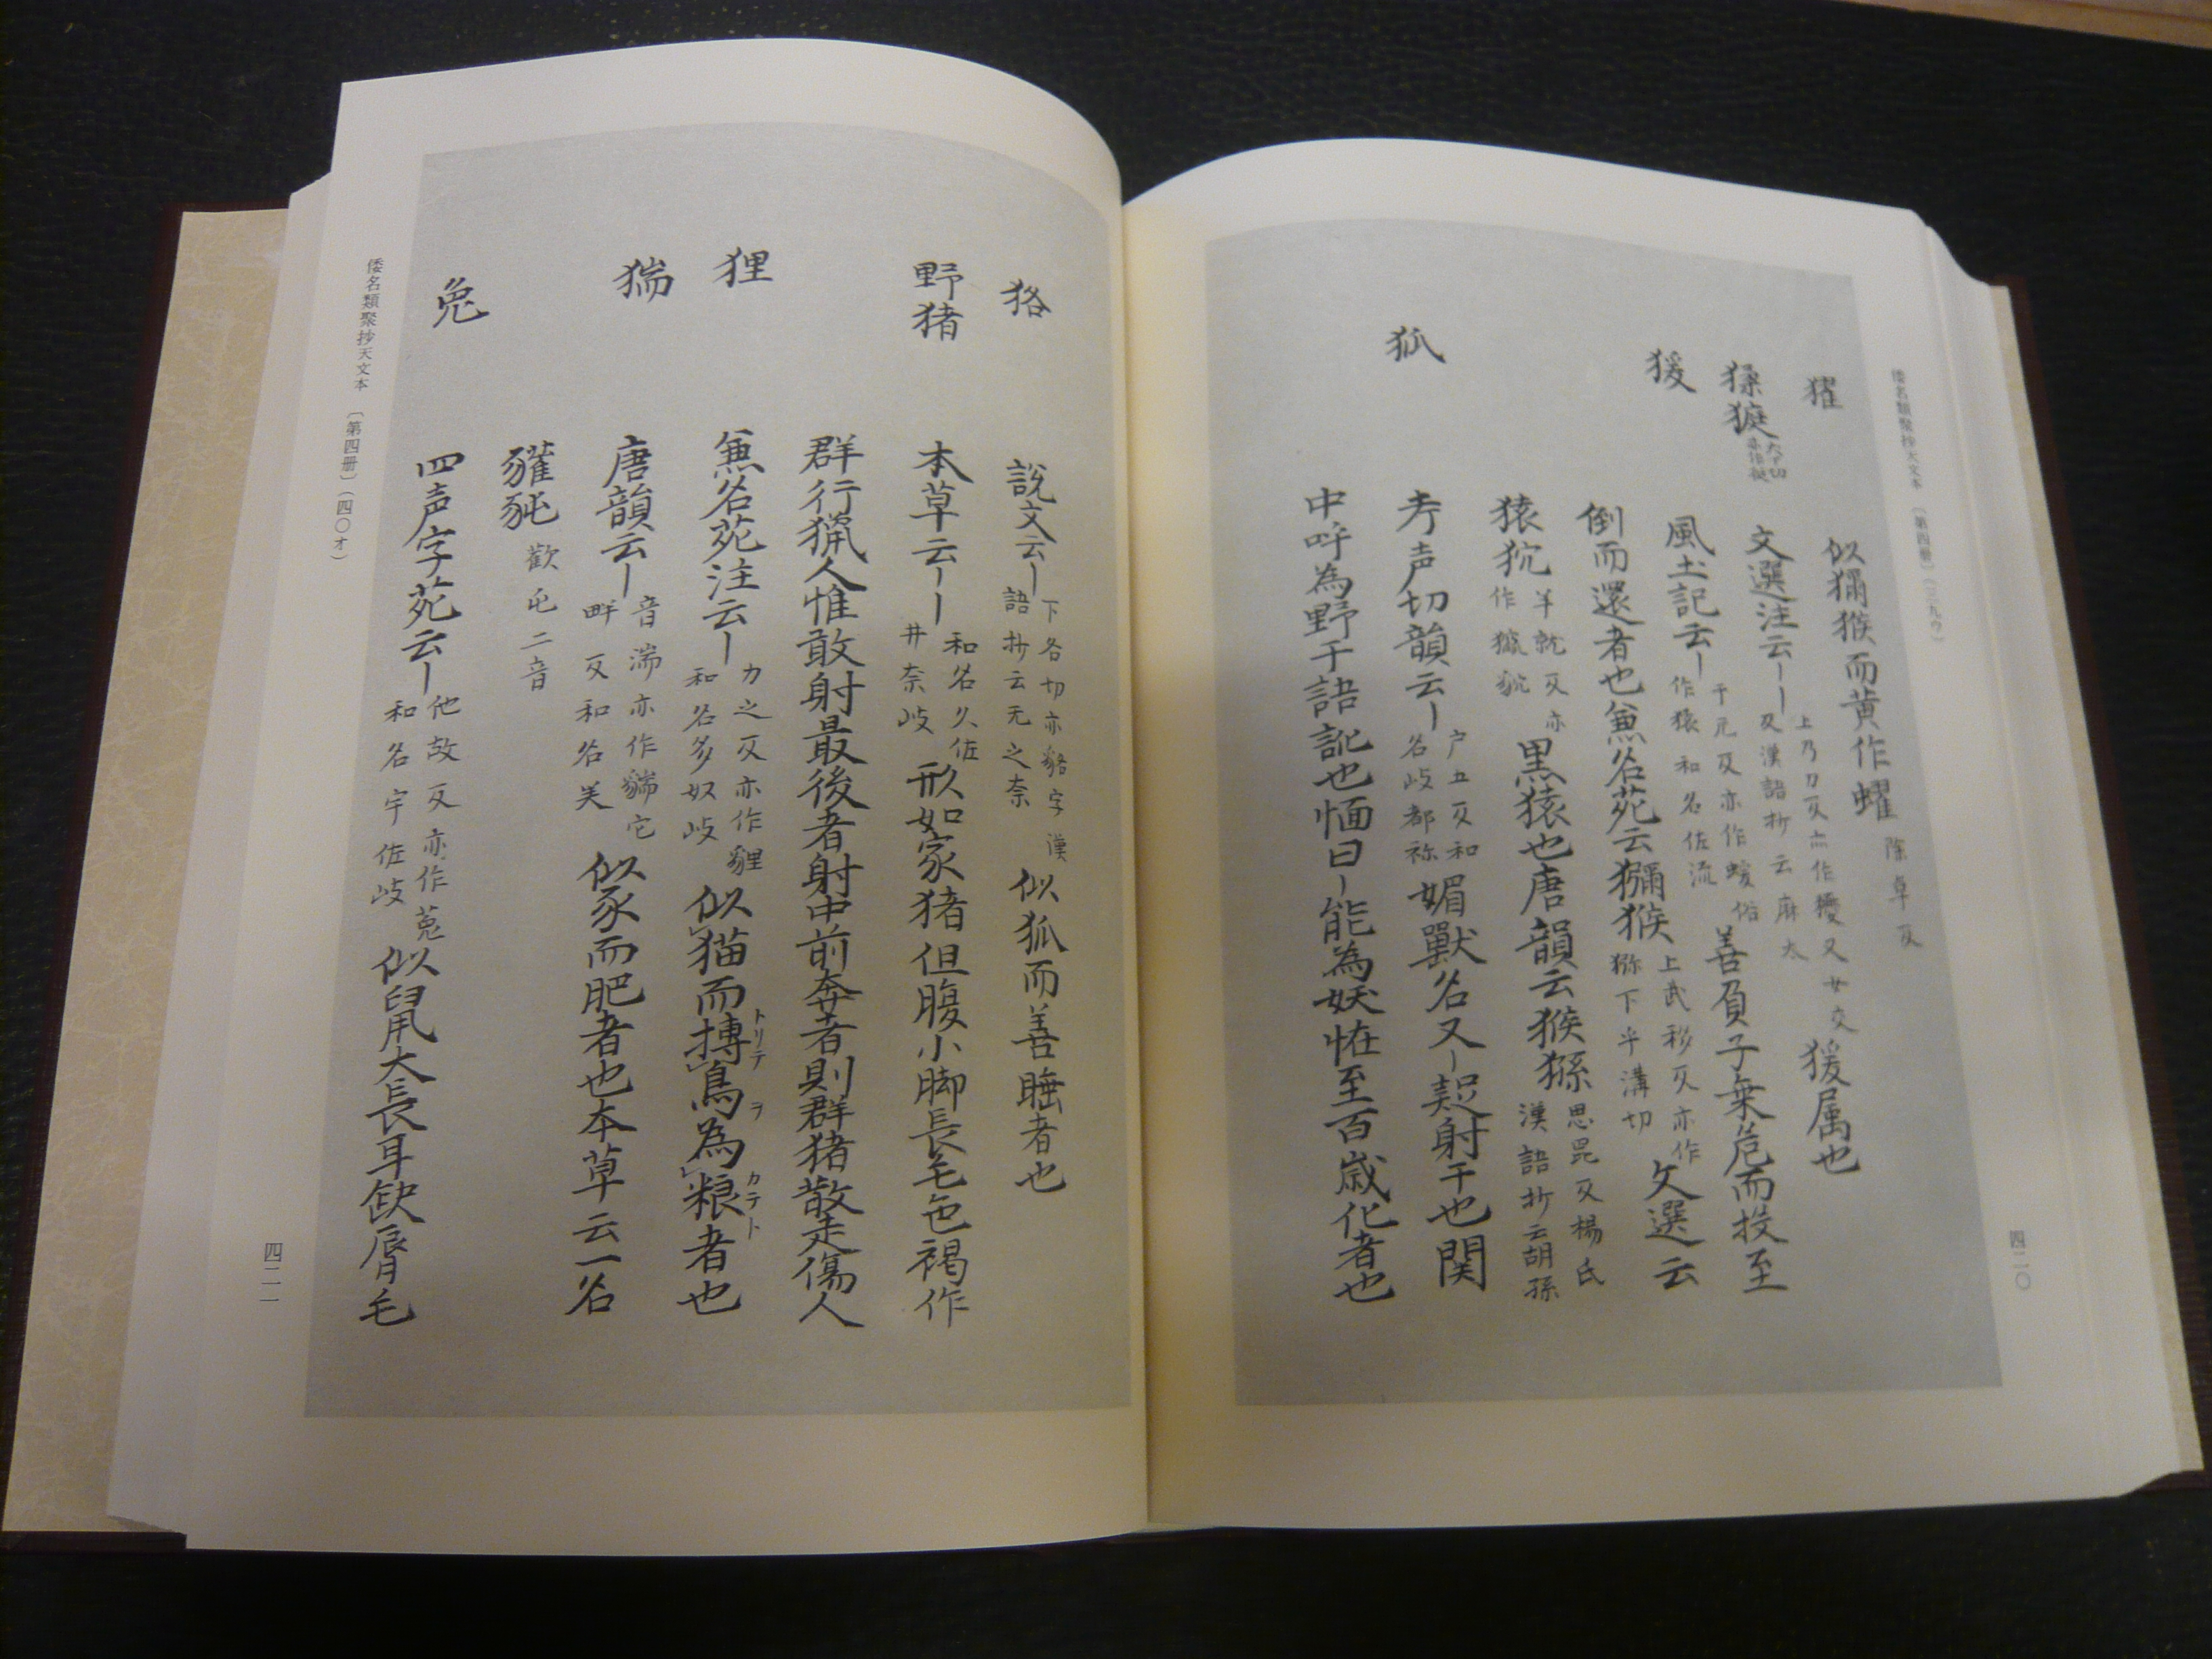 倭名類聚抄天文本〔第四册〕(三九ウ)
四二〇
玃
似獼猴而黄作蠼 除卓反
猱㹶
文選注云〡〡 上乃刀反亦作獶又女交反漢語抄云麻太 猨属也
猨
風土記云〡 于元反亦作蝯俗作猿和名佐流 善負子乗危而投至
倒而還者也兼名苑云獼猴 上武移反亦作猕下乎溝切 文選云
猿狖 羊就反亦作㺠貁 黒猿也唐韻云猴猻 思昆反楊氏漢語抄云胡孫
狐
考声切韻云〡 户五反和名岐都祢 媚獸名又〡疑射干也関
中呼為野干語訛也愐曰〡能為妖恠至百歳化者也
狢
說文云〡 下各切亦貉字漢語抄云无之奈 似狐而善睡者也
野猪
本草云〡〡 和名久佐井奈岐 形如家猪但腹小脚長毛色褐作
群行獵人惟敢射最後者射中前奔者則群猪散走傷人
狸
兼名苑注云〡 力之反亦作貍和名多奴岐 似猫而搏鳥為粮者也
トリテ ヲ カテト
猯
唐韻云〡 音湍亦作貒它畔反和名美 似豕而肥者也本草云一名
貛㹠 歡屯二音
兎
四声字苑云〡 他故反亦作菟和名宇佐岐 似鼠大長耳缺脣毛
倭名類聚抄天文本〔第四册〕(四〇オ)
四二一